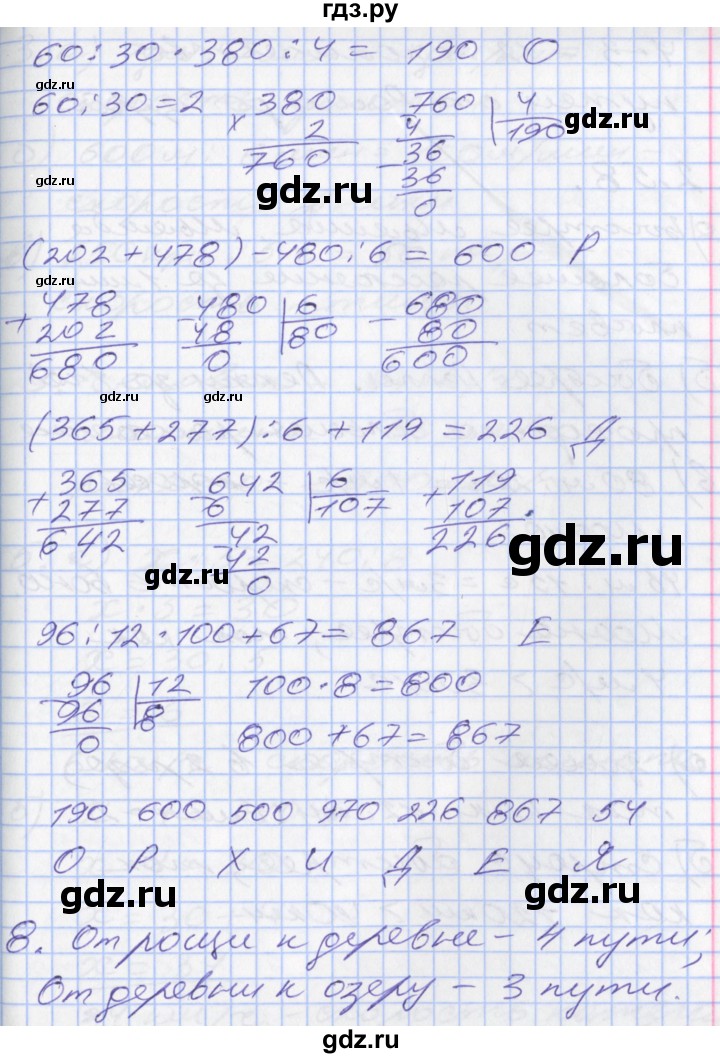 гдз.ру
60 : 30 · 380 : 4 = 190 О
gdz.ru
60 : 30 = 2 380 760 4
× 2 4 190
760 36 gdz.ru
gdz.ru 36
gdz.ru 0
(202 + 478) - 480 : 6 = 600 Р
gdz.ru
+ 478 - 480 6 - 680
202 48 80 80
680 0 600
gdz.ru gdz.ru
(365 + 277) : 6 + 119 = 226 Д
+ 365 - 642 6 + 119
277 6 107 107
642 - 42 226
42 gdz.ru
gdz.ru 0
96 : 12 · 100 + 67 = 867 Е
- 96 12 100 · 8 = 800
96 8
0 800 + 67 = 867
190 600 500 970 226 867 54
О Р Х И Д Е Я
gdz.ru gdz.ru
8. От рощи к деревне – 4 пути;
От деревни к озеру – 3 пути.
gdz.ru gdz.ru